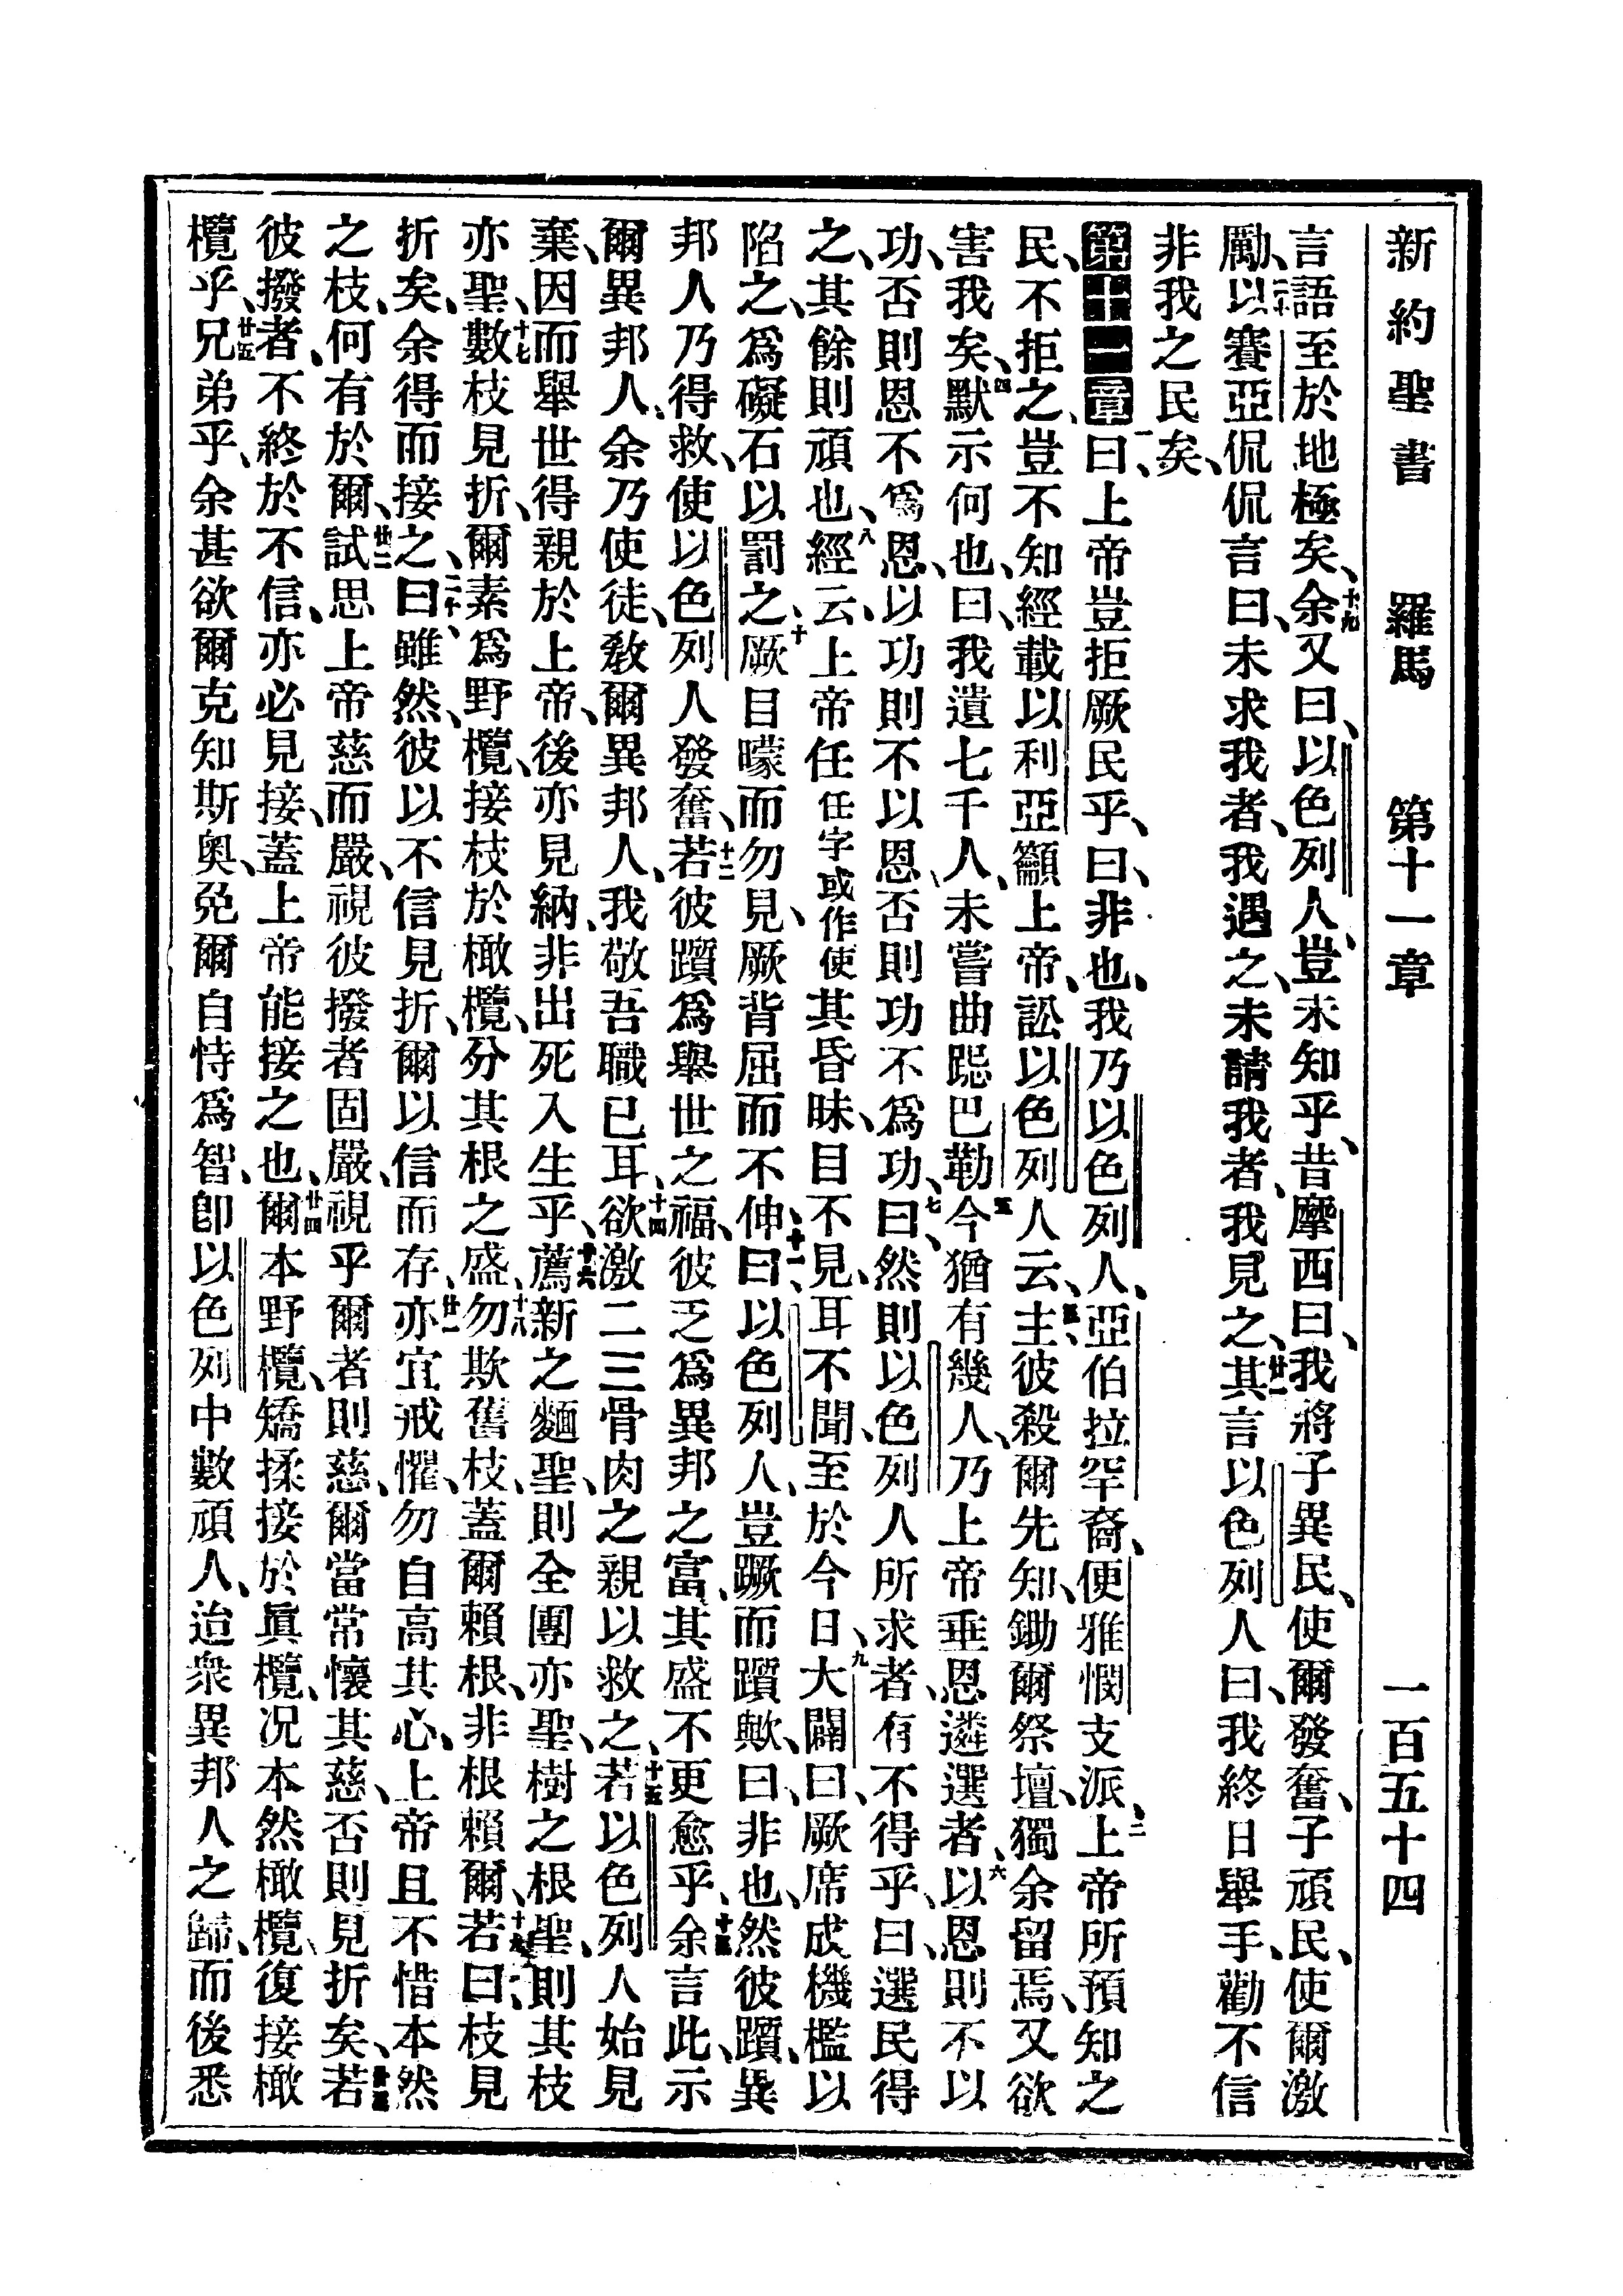 新約聖書 羅馬 第十一章 一百五十四
言語至於地極矣、十九余又曰、以色列人、豈未知乎、昔摩西曰、我將子異民、使爾發奮、子頑民、使爾激
勵、二十以賽亞侃侃言曰、未求我者、我遇之、未請我者、我見之、廿一其言以色列人曰、我終日舉手、勸不信
非我之民矣、
第十一章一曰、上帝豈拒厥民乎、曰、非也、我乃以色列人、亞伯拉罕裔、便雅憫支派、二上帝所預知之
民、不拒之、豈不知經載以利亞籲上帝、訟以色列人云、三主、彼殺爾先知、鋤爾祭壇、獨余留焉、又欲
害我矣、四默示何也、曰、我遺七千人、未嘗曲跽巴勒、五今猶有幾人、乃上帝垂恩遴選者、六以恩則不以
功、否則恩不爲恩、以功則不以恩、否則功不爲功、七曰、然則以色列人所求者、有不得乎、曰、選民得
之、其餘則頑也、八經云、上帝任任字或作使其昏昧、目不見、耳不聞、至於今日、九大闢曰、厥席成機檻以
陷之、爲礙石以罰之、十厥目曚而勿見、厥背屈而不伸、十一曰、以色列人、豈蹶而躓歟、曰、非也、然彼躓、異
邦人乃得救、使以色列人發奮、十二若彼躓爲舉世之福、彼乏爲異邦之富、其盛不更愈乎、十三余言此、示
爾異邦人、余乃使徒、敎爾異邦人、我敬吾職已耳、十四欲激二三骨肉之親以救之、十五若以色列人始見
棄、因而舉世得親於上帝、後亦見納、非出死入生乎、十六薦新之麵聖、則全團亦聖、樹之根聖、則其枝
亦聖、十七數枝見折、爾素爲野欖、接枝於橄欖、分其根之盛、十八勿欺舊枝、蓋爾賴根、非根賴爾、十九若曰、枝見
折矣、余得而接之、二十曰、雖然、彼以不信見折、爾以信而存、廿一亦宜戒懼、勿自高其心、上帝且不惜本然
之枝、何有於爾、廿二試思上帝慈而嚴、視彼撥者固嚴、視乎爾者則慈、爾當常懷其慈、否則見折矣、廿三若
彼撥者、不終於不信、亦必見接、蓋上帝能接之也、廿四爾本野欖、矯揉接於眞欖、况本然橄欖、復接橄
欖乎、廿五兄弟乎、余甚欲爾克知斯奧、免爾自恃爲智、卽以色列中數頑人、迨衆異邦人之歸、而後悉